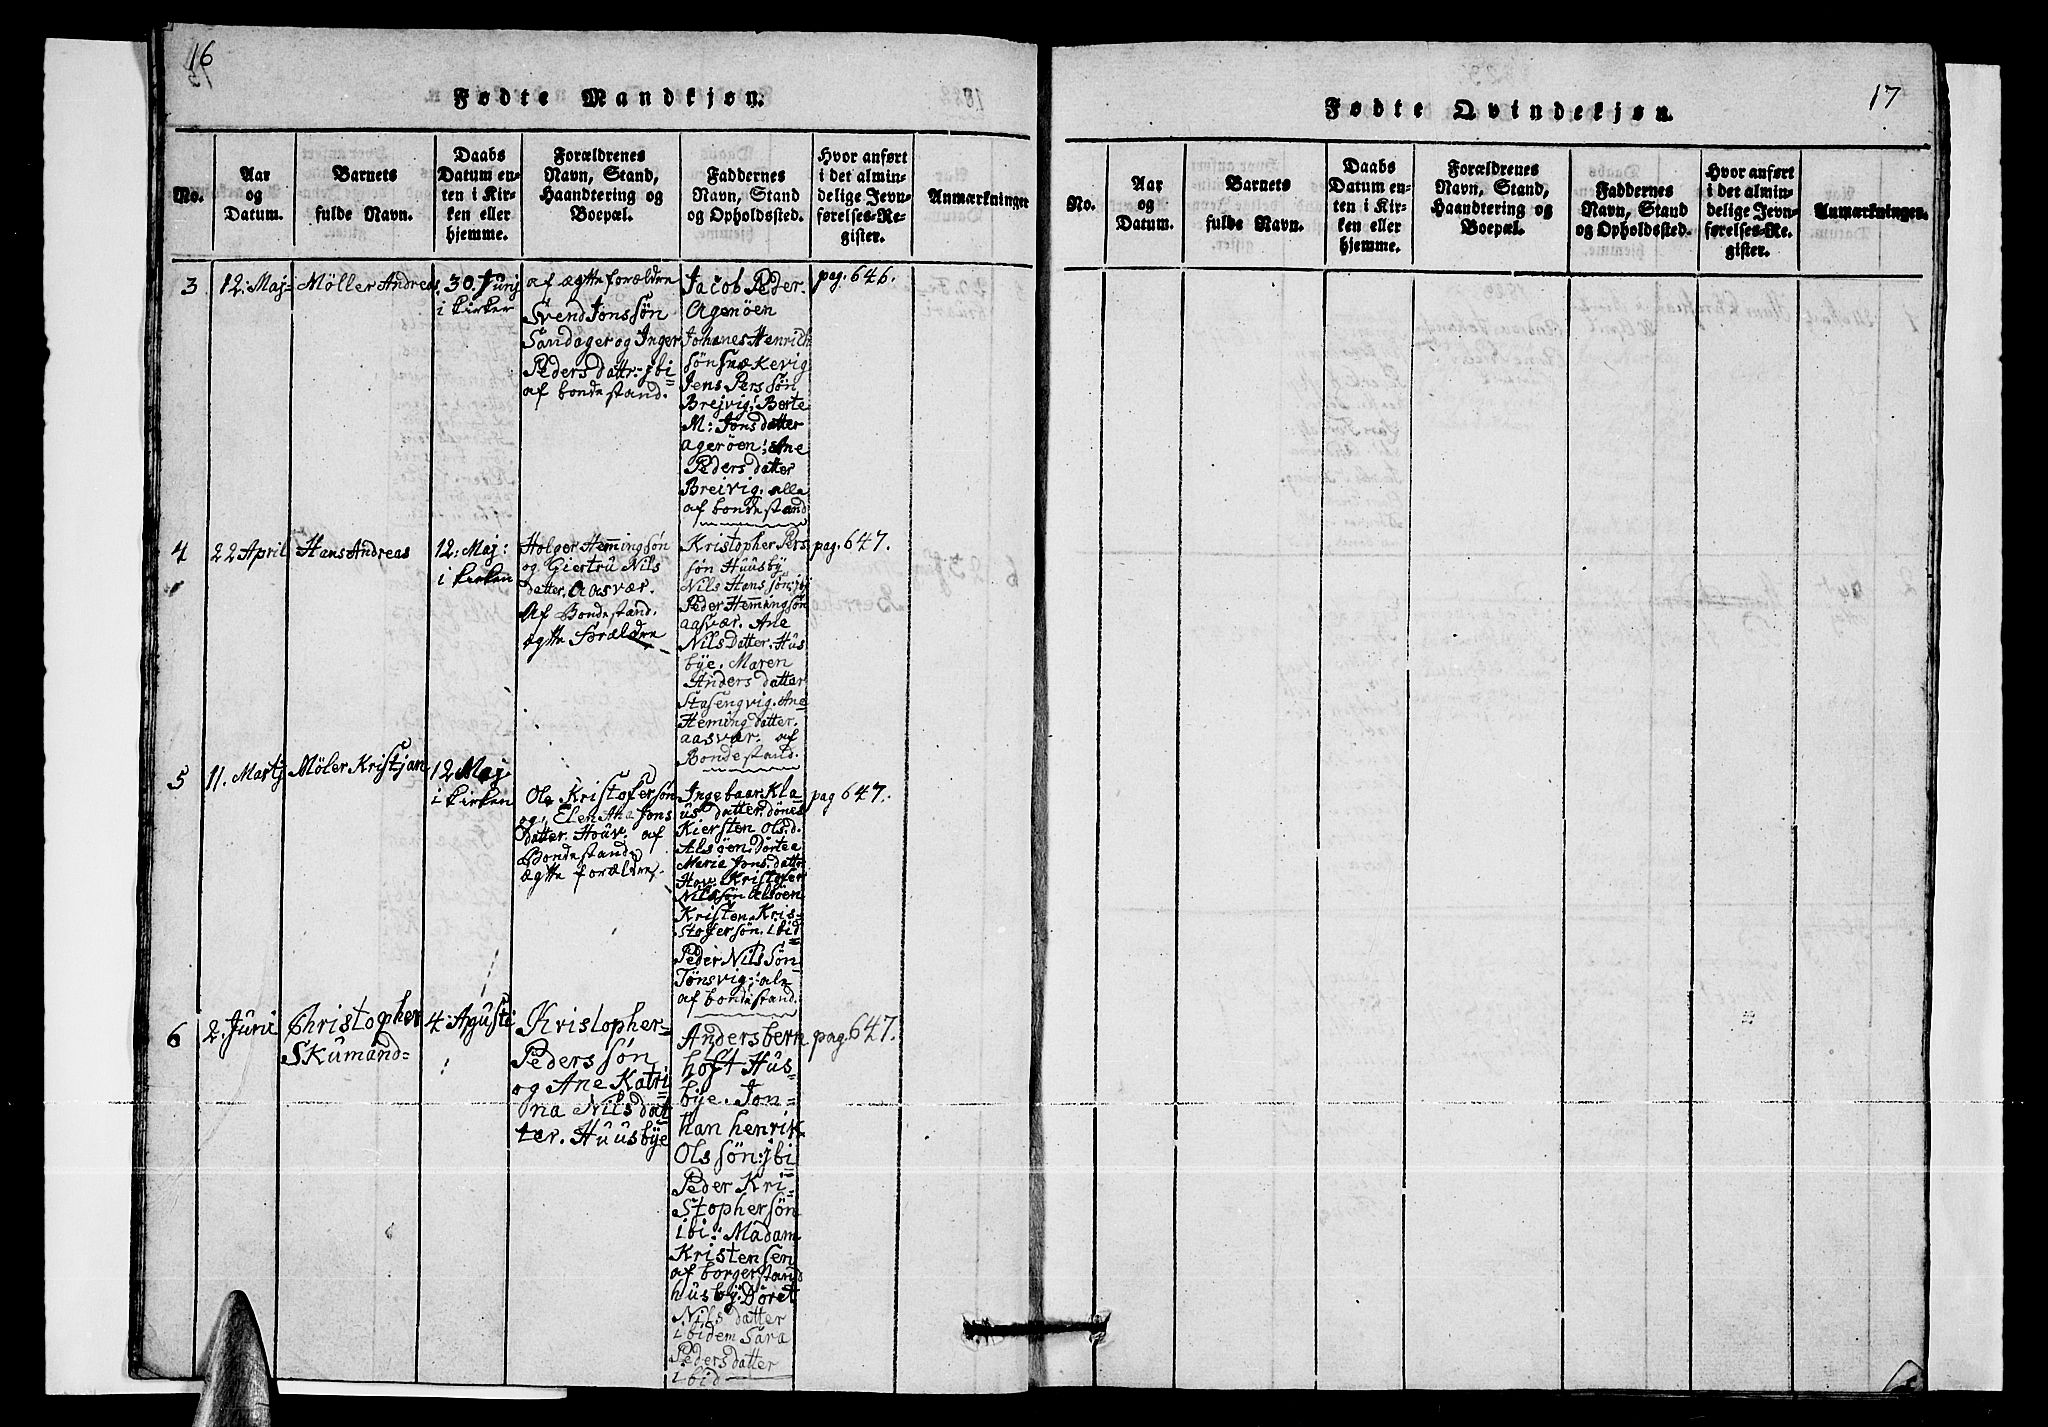 16
Fødte Mandkjøn.
No.
Aar
og
Datum.
Barnets
fulde Navn.
Daabs
Datum en-
ten i Kir-
ken eller
hjemme.
Forældrenes
Navn, Stand,
Haandtering og
Boepæl.
Faddernes
Navn, Stand
og Opholdssted.
Hvor anført
i det almin-
delige Jevn-
førelses-Re-
gister.
Anmærkninger
3
12. Maj-
Möller Andreas
30 Junj
i kirken
af ægtte forældre
Svend Jonssön
Sandager og Inger
Peders dattr. jbi=
af bondestand.
Jacob Peder.
Agerøen
Johanes Henrich
sön Snækevig
Jens Perssön
Brejvig; Berte
M: Jonsdatter
agerøen; Ane
Peders datter
Breivig. alle
af bondestand
pag. 646.
4
22 April
Hans Andreas
12: Maj:
i kirken
Holger Hem̄ingsøn
og Giertru Nils
datter. Aasvær.
Af Bondestand.
ægtte forældre
Kristopher Pers
søn Huusby
Nils Hanssøn jbi
Peder Hem̄ingsøn
aasvær. Ane
Nilsdatter. Hus
bye. Maren
Anders datter
Stasengvig. Ane
Heming datter.
aasvær. af
Bondestand.
pag. 647.
5
11. Martj
Möler Kristjan
12 Maj.
i kirken
Ole Kristofersøn
og Elen Ana Jons
datter. Houv. af
Bondestand
ægtte forældre,
Ingebaar Kla=
us datter. dønes
Kiersten Ols.d.
Alsøen. Dortea
Maria Jons. dattr
Hov. Kristofer
Nilssøn Alsøen
Kristen Kris-
stofersøn. ibid=
Peder Nilssøn
Tönsvig; ale
af bondestand.
pag 647.
6
2. Juni
Christopher
Skumand=
4 Agusti
Kristopher=
Peders søn
og Ane Katri=
na Nils dat
ter. Huusbye
Anders bern
hoft Hus=
bye. Jon=
han henrik
Olssøn jbi=
Peder Kri=
stophersøn
ibi: Madam
Kristensen
af borgerstand
husby. Doret
Nils datter
ibidem Sara
Pedersdatter
ibid
pag. 647.
17
Fødte Qvindekjøn.
No.
Aar
og
Datum.
Barnets
fulde Navn.
Daabs
Datum en-
ten i Kir-
ken eller
hjemme.
Forældrenes
Navn, Stand,
Haandtering og
Boepæl.
Faddernes
Navn, Stand
og Opholdssted.
Hvor anført
i det almin-
delige Jevn-
førelses-Re-
gister.
Anmærkninger.